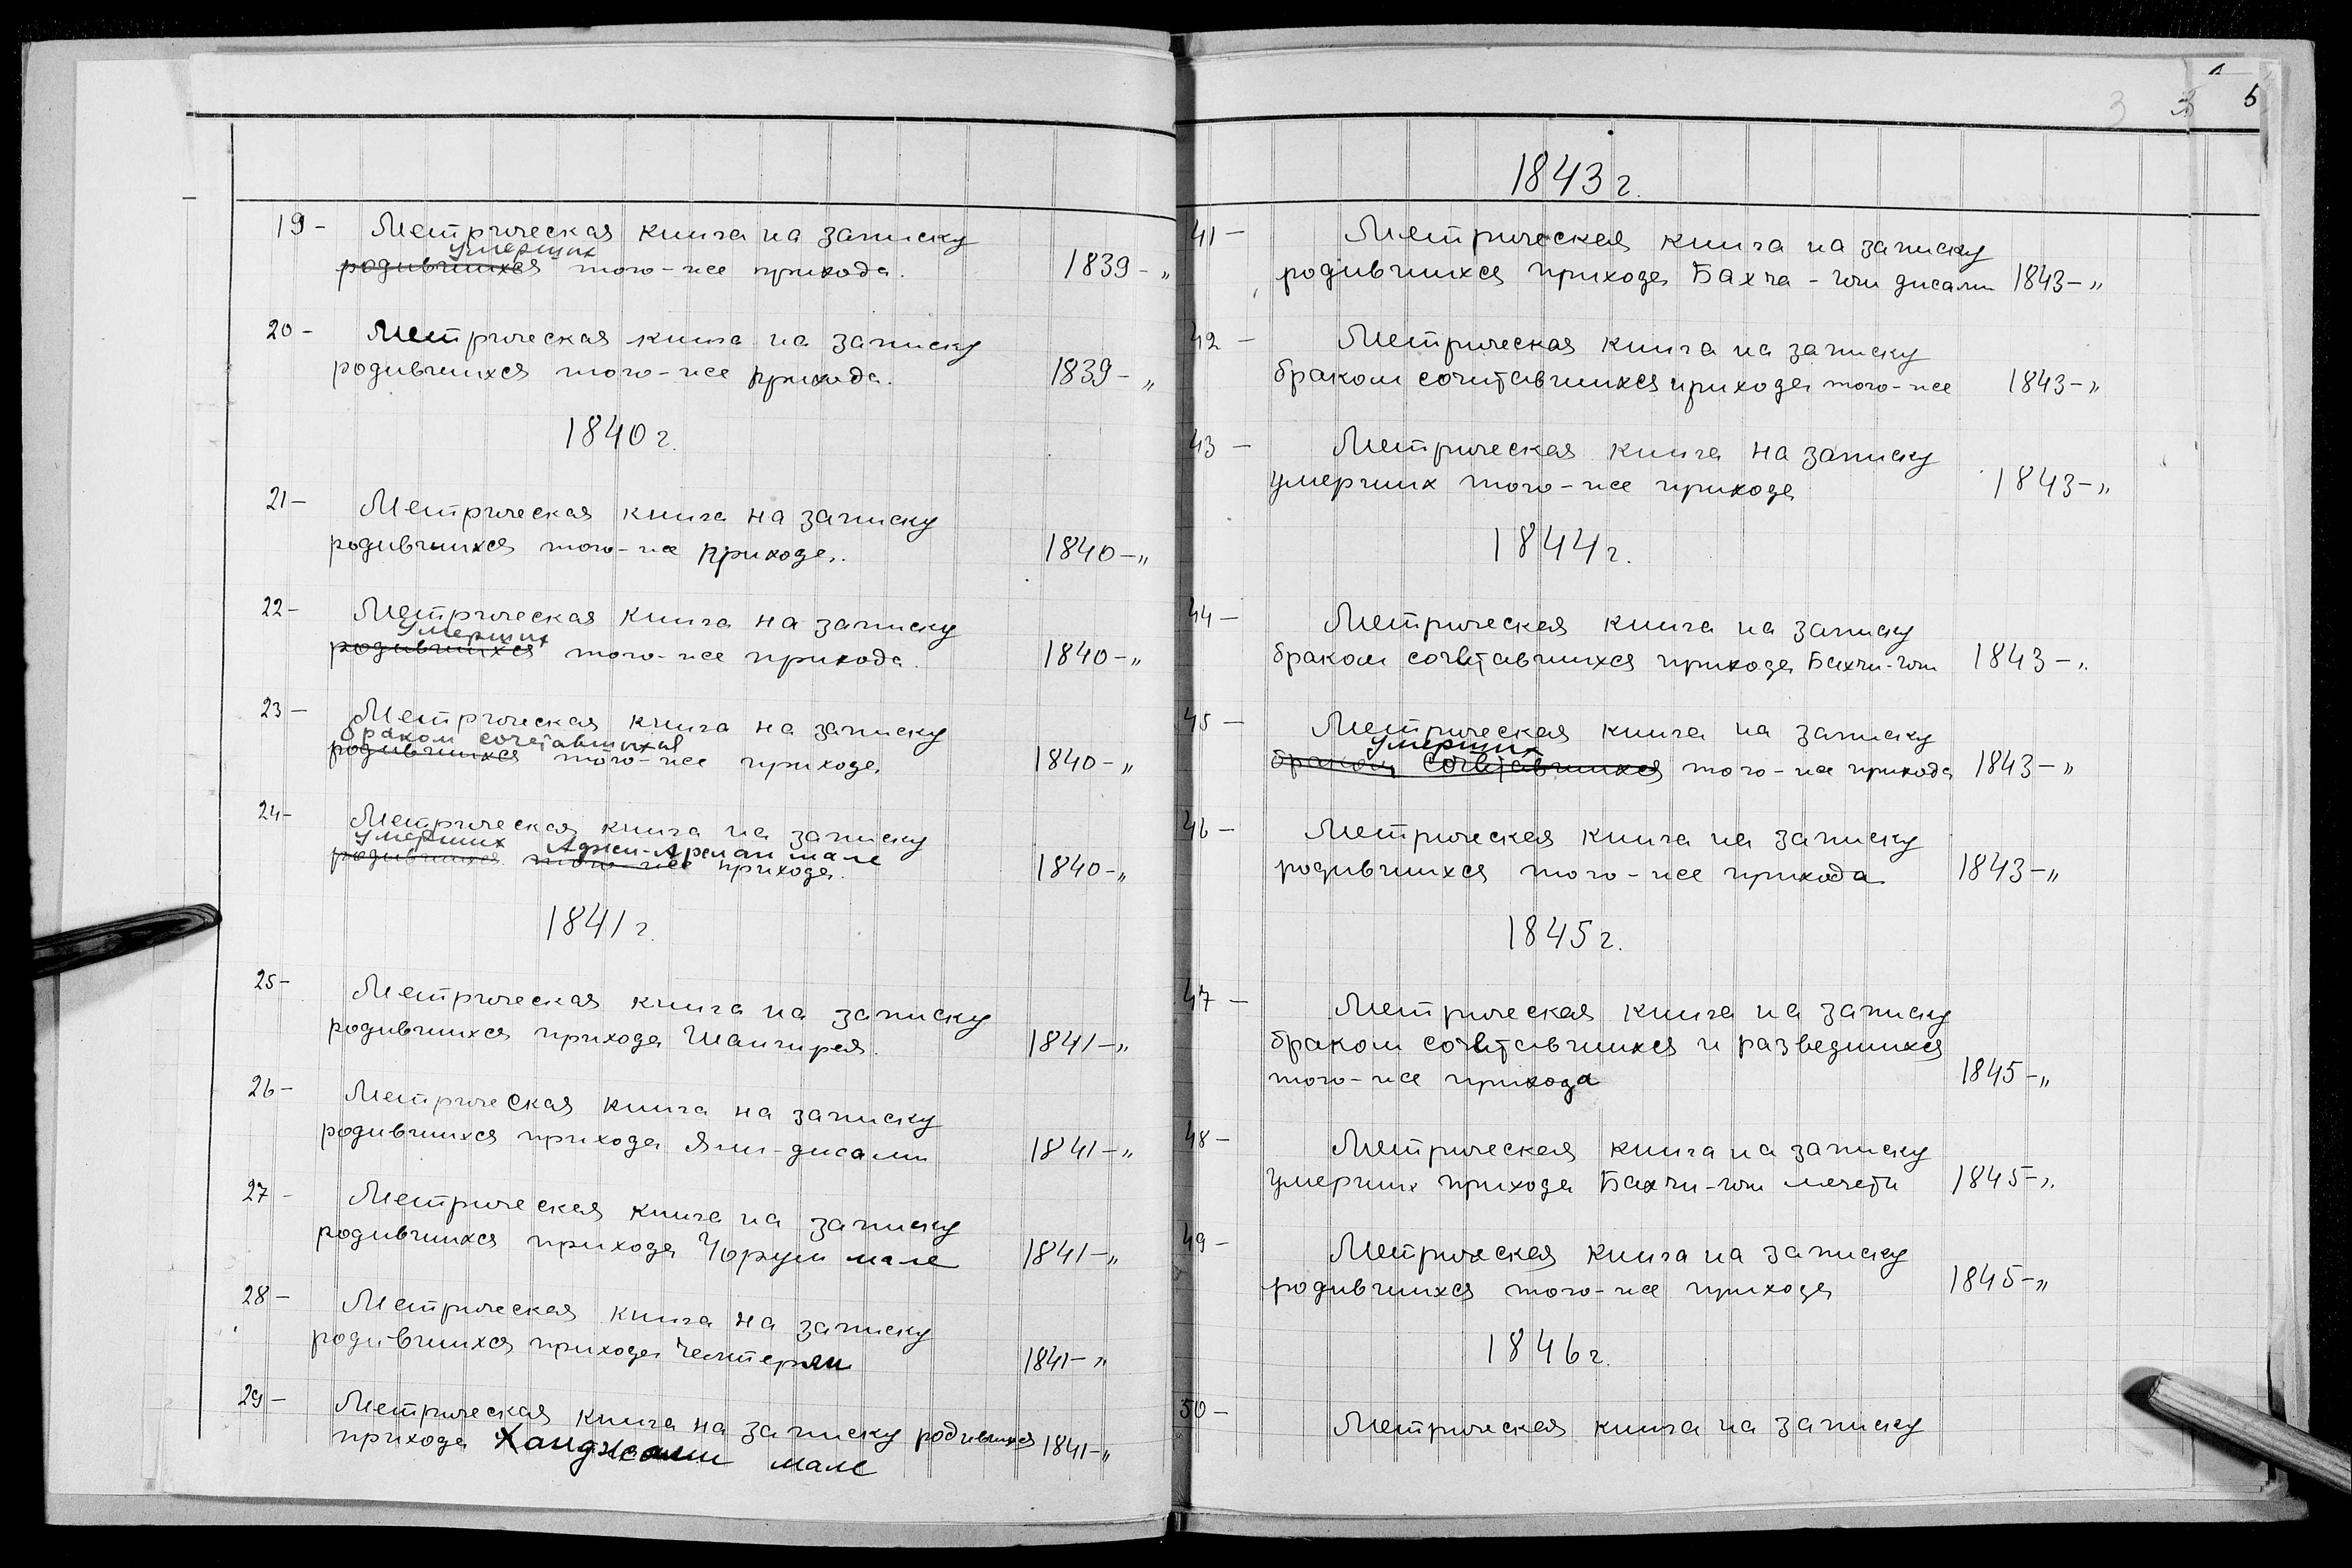 19 - Метрическая книга на записку
умерших
родившихся того-же прихода. 1839 - „
20 - Метрическая книга на записку
родившихся того-же прихода. 1839 - „
1840 г.
21 - Метрическая книга на записку
родившихся того-же прихода. 1840 - „
22 - Метрическая книга на записку
умерших
родившихся того-же прихода. 1840 - „
23 - Метрическая книга на записку
браком сочетавшихся
родившихся того-же прихода 1840 - „
24 - Метрическая книга на записку
умерших Аджи-Арслан мале
родившихся того-же прихода. 1840 - „
1841 г.
25 - Метрическая книга на записку
родившихся прихода Шангирея. 1841 - „
26 - Метрическая книга на записку
родившихся прихода Яни-джами 1841 - „
27 - Метрическая книга на записку
родившихся прихода Чорум мале 1841 - „
28 - Метрическая книга на записку
родившихся прихода 1841 - „
29 - Метрическая книга на записку родившихся
прихода Ханджами мале 1841 - „
3 3 5
1843 г.
41 - Метрическая книга на записку
родившихся прихода Бахча-или джами 1843 - „
42 - Метрическая книга на записку
браком сочетавшихся прихода того-же 1843 - „
43 - Метрическая книга на записку
умерших того-же прихода 1843 - „
1844 г.
44 - Метрическая книга на записку
браком сочетавшихся прихода Бахчи-или 1843 - „
45 - Метрическая книга на записку
умерших
браком сочетавшихся того-же прихода 1843 - „
46 - Метрическая книга на записку
родившихся того-же прихода 1843 - „
1845 г.
47 - Метрическая книга на записку
браком сочетавшихся и разведшихся
того-же прихода 1845 - „
48 - Метрическая книга на записку
умерших прихода Бахчи-или мечети 1845 - „
49 - Метрическая книга на записку
родившихся того-же прихода 1845 - „
1846 г.
50 - Метрическая книга на записку